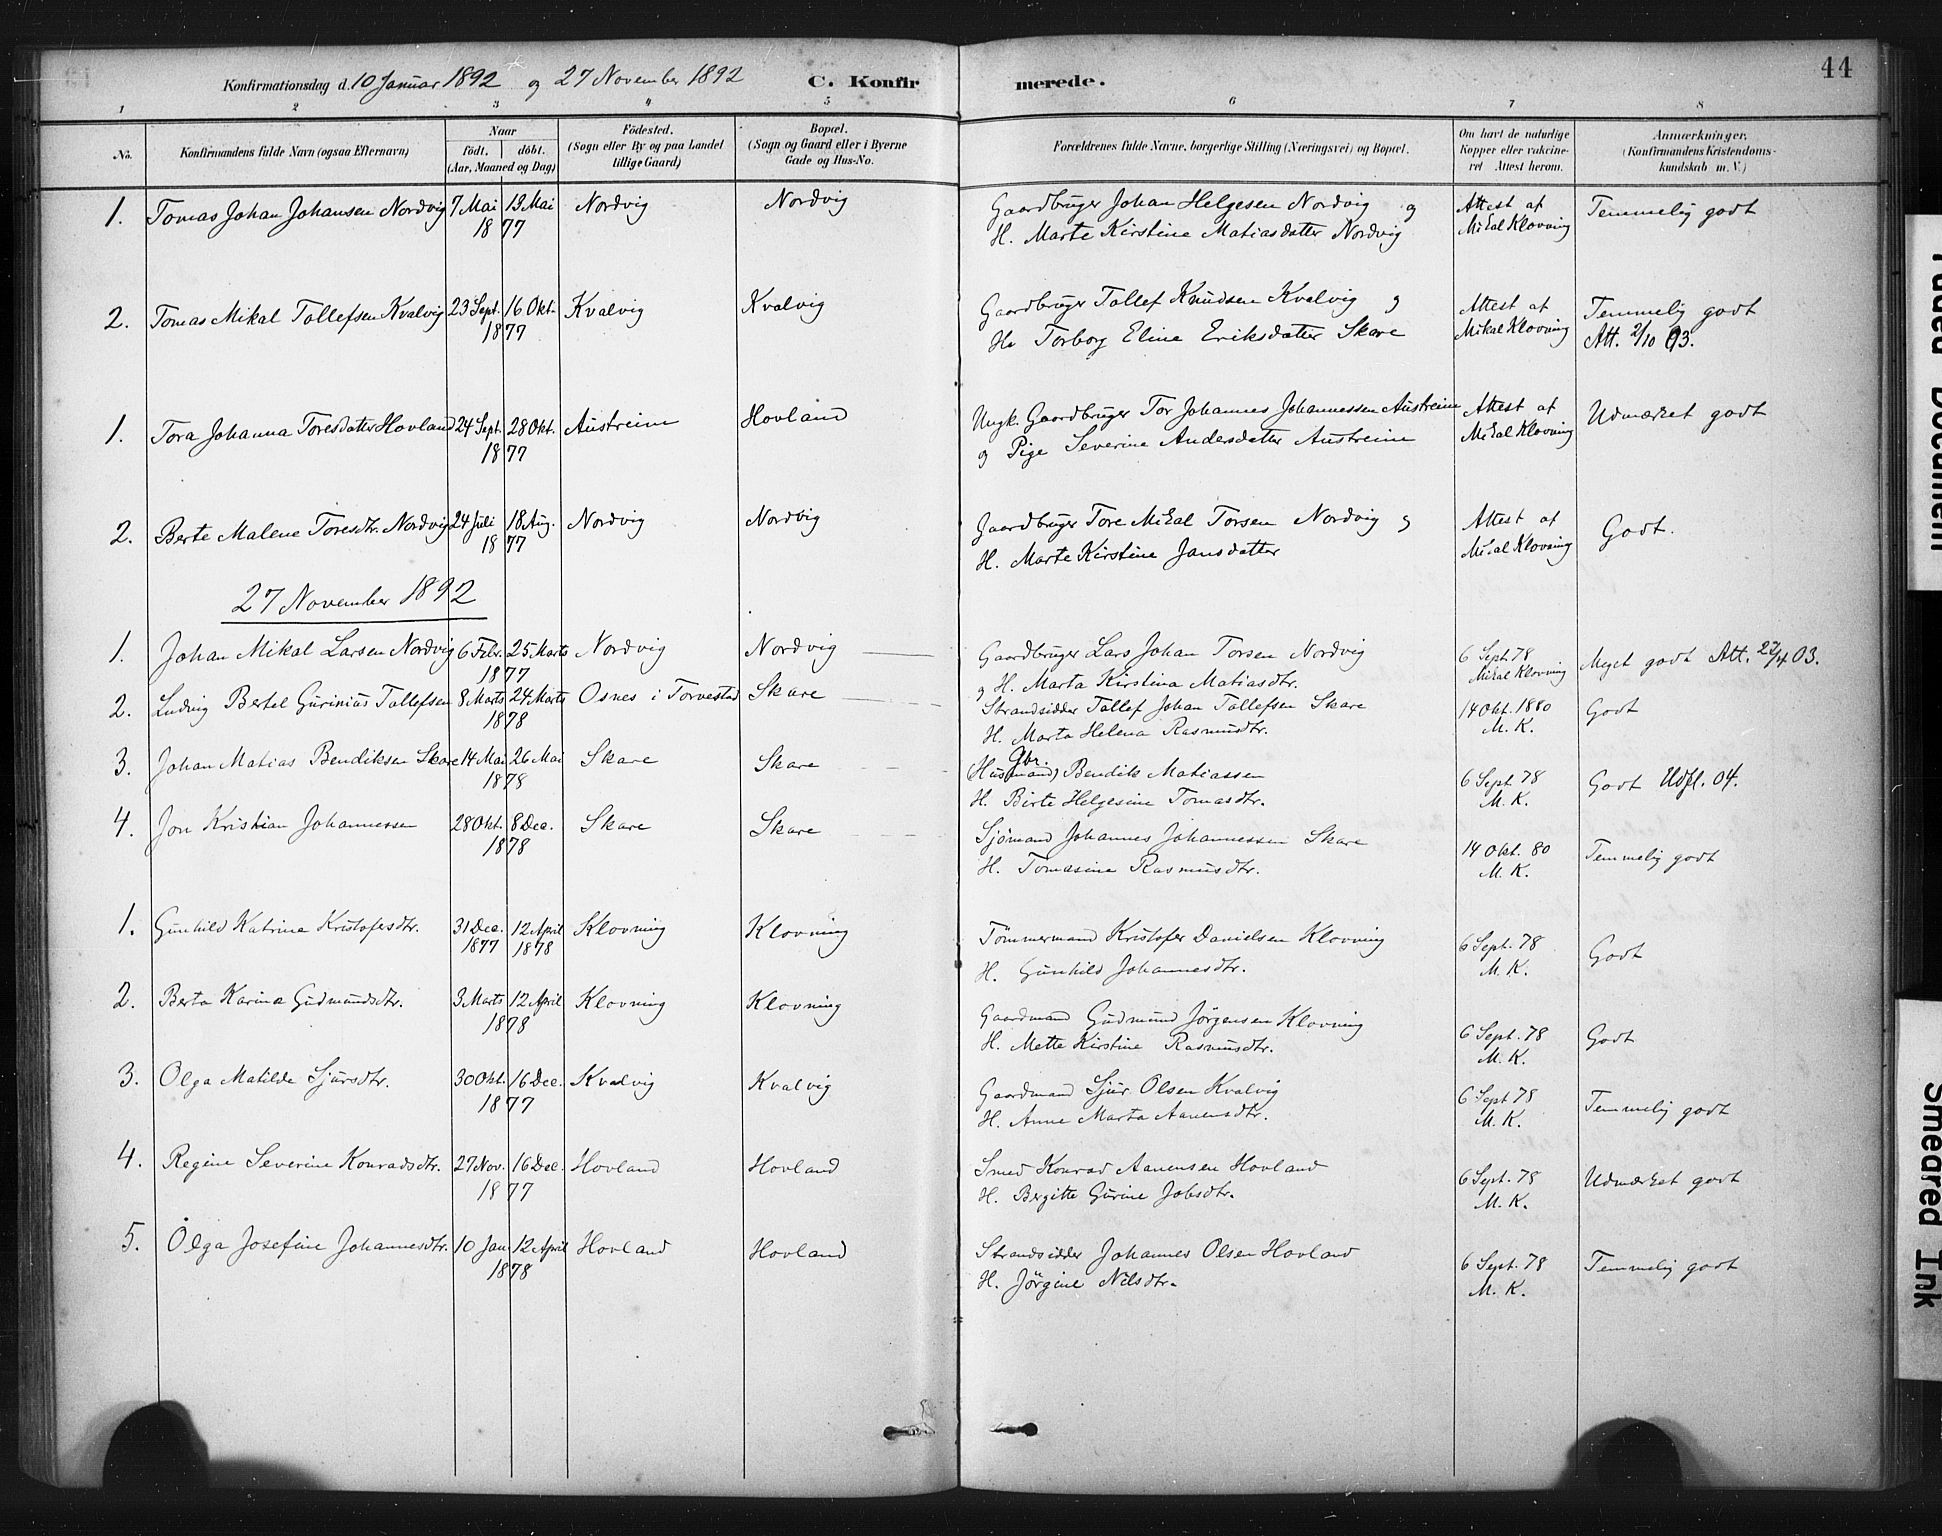 44
Konfirmationsdag d. 10 Januar 1892 og 27 November 1892 C. Konfirmerede.
1 2 3 4 5 6 7 8
No.
Konfirmandens fulde Navn (ogsaa Efternavn)
Naar
födt. döbt.
(Aar, Maaned og Dag)
Födested.
(Sogn eller By og paa Landet
tillige Gaard)
Bopæl.
(Sogn og Gaard eller i Byerne
Gade og Hus-No.
Forældrenes fulde Navne, borgerlige Stilling (Næringsvei) og Bopæl.
Om havt de naturlige
Kopper eller vakcine-
ret Attest herom.
Anmærkninger.
(Konfirmandens Kristendoms-
kundskab m. V.)
1. Tomas Johan Johansen Nordvig 7 Mai 13 Mai Nordvig Nordvig Gaardbruger Johan Helgesen Nordvig og Attest af Temmelig godt
1877 H. Marte Kirstine Matiasdatter Nordvig Mikal Klovning
2. Tomas Mikal Tollefsen Kvalvig 23 Sept. 16 Okt. Kvalvig Kvalvig Gaardbruger Tollef Knudsen Kvalvig og Attest af Temmelig godt
1877 H. Torborg Eline Eriksdatter Skare Mikal Klovning Att. 2/10 93.
1. Tora Johanna Toresdatter Hovland 24 Sept. 28 Okt. Austreim Hovland Ungk. Gaardbruger Tor Johannes Johannessen Austreim Attest af Udmærket godt
1877 og Pige Severine Andersdatter Austreim Mikal Klovning
2. Berte Malene Toresdtr. Nordvig 24 Juli 18 Aug. Nordvig Nordvig Gaardbruger Tore Mikal Torsen Nordvig og Attest af Godt.
1877 H. Marte Kirstine Jansdatter Mikal Klovning
27 November 1892
1. Johan Mikal Larsen Nordvig 6 Febr. 25 Marts Nordvig Nordvig Gaardbruger Lars Johan Torsen Nordvig 6 Sept. 78 Meget godt Att. 22/4 03.
1877 og H. Marta Kirstina Matiasdtr. Mikal Klovning
2. Ludvig Bertel Gurinius Tollefsen 8 Marts 24 Marts Osnes i Torvestad Skare Strandsidder Tollef Johan Tollefsen Skare 14 Okt. 1880 Godt
1878 H. Marta Helena Rasmusdtr. M. K.
Gbr.
3. Johan Matias Bendiksen Skare 14 Mai 26 Mai Skare Skare (Husmand) Bendik Matiassen 6 Sept 78 Godt Udfl. 04.
1878 H. Birte Helgesine Tomasdtr. M. K.
4. Jon Kristian Johannessen 28 Okt. 8 Dec. Skare Skare Sjömand Johannes Johannessen Skare 14 Okt. 80 Temmelig godt
1878 H. Tomasine Rasmusdtr. M. K.
1. Gunhild Katrine Kristofersdtr. 31 Dec. 12 April Klovning Klovning Tömmermand Kristofer Danielsen Klovning 6 Sept. 78 Godt
1877 1878 H. Gunhild Johannesdtr. M. K.
2. Berta Karina Gudmundsdtr. 3 Marts 12 April Klovning Klovning Gaardmand Gudmund Jörgensen Klovning 6 Sept. 78 Godt
1878 H. Mette Kirstine Rasmusdtr. M. K.
3. Olga Matilde Sjursdtr. 30 Okt. 16 Dec. Kvalvig Kvalvig Gaardmand Sjur Olsen Kvalvig 6 Sept 78 Temmelig godt
1877 H. Anne Marta Aanensdtr. M. K.
4. Regine Severine Konradsdtr. 27 Nov. 16 Dec. Hovland Hovland Smed Konrad Aanensen Hovland 6 Sept. 78 Udmærket godt
1877 H. Bergitte Gurine Jobsdtr. M. K.
5. Olga Josefine Johannesdtr. 10 Jan 12 April Hovland Hovland Strandsidder Johannes Olsen Hovland 6 Sept. 78 Temmelig godt
1878 H. Jörgine Nilsdtr. M. K.
Faded Document
Smeared Ink